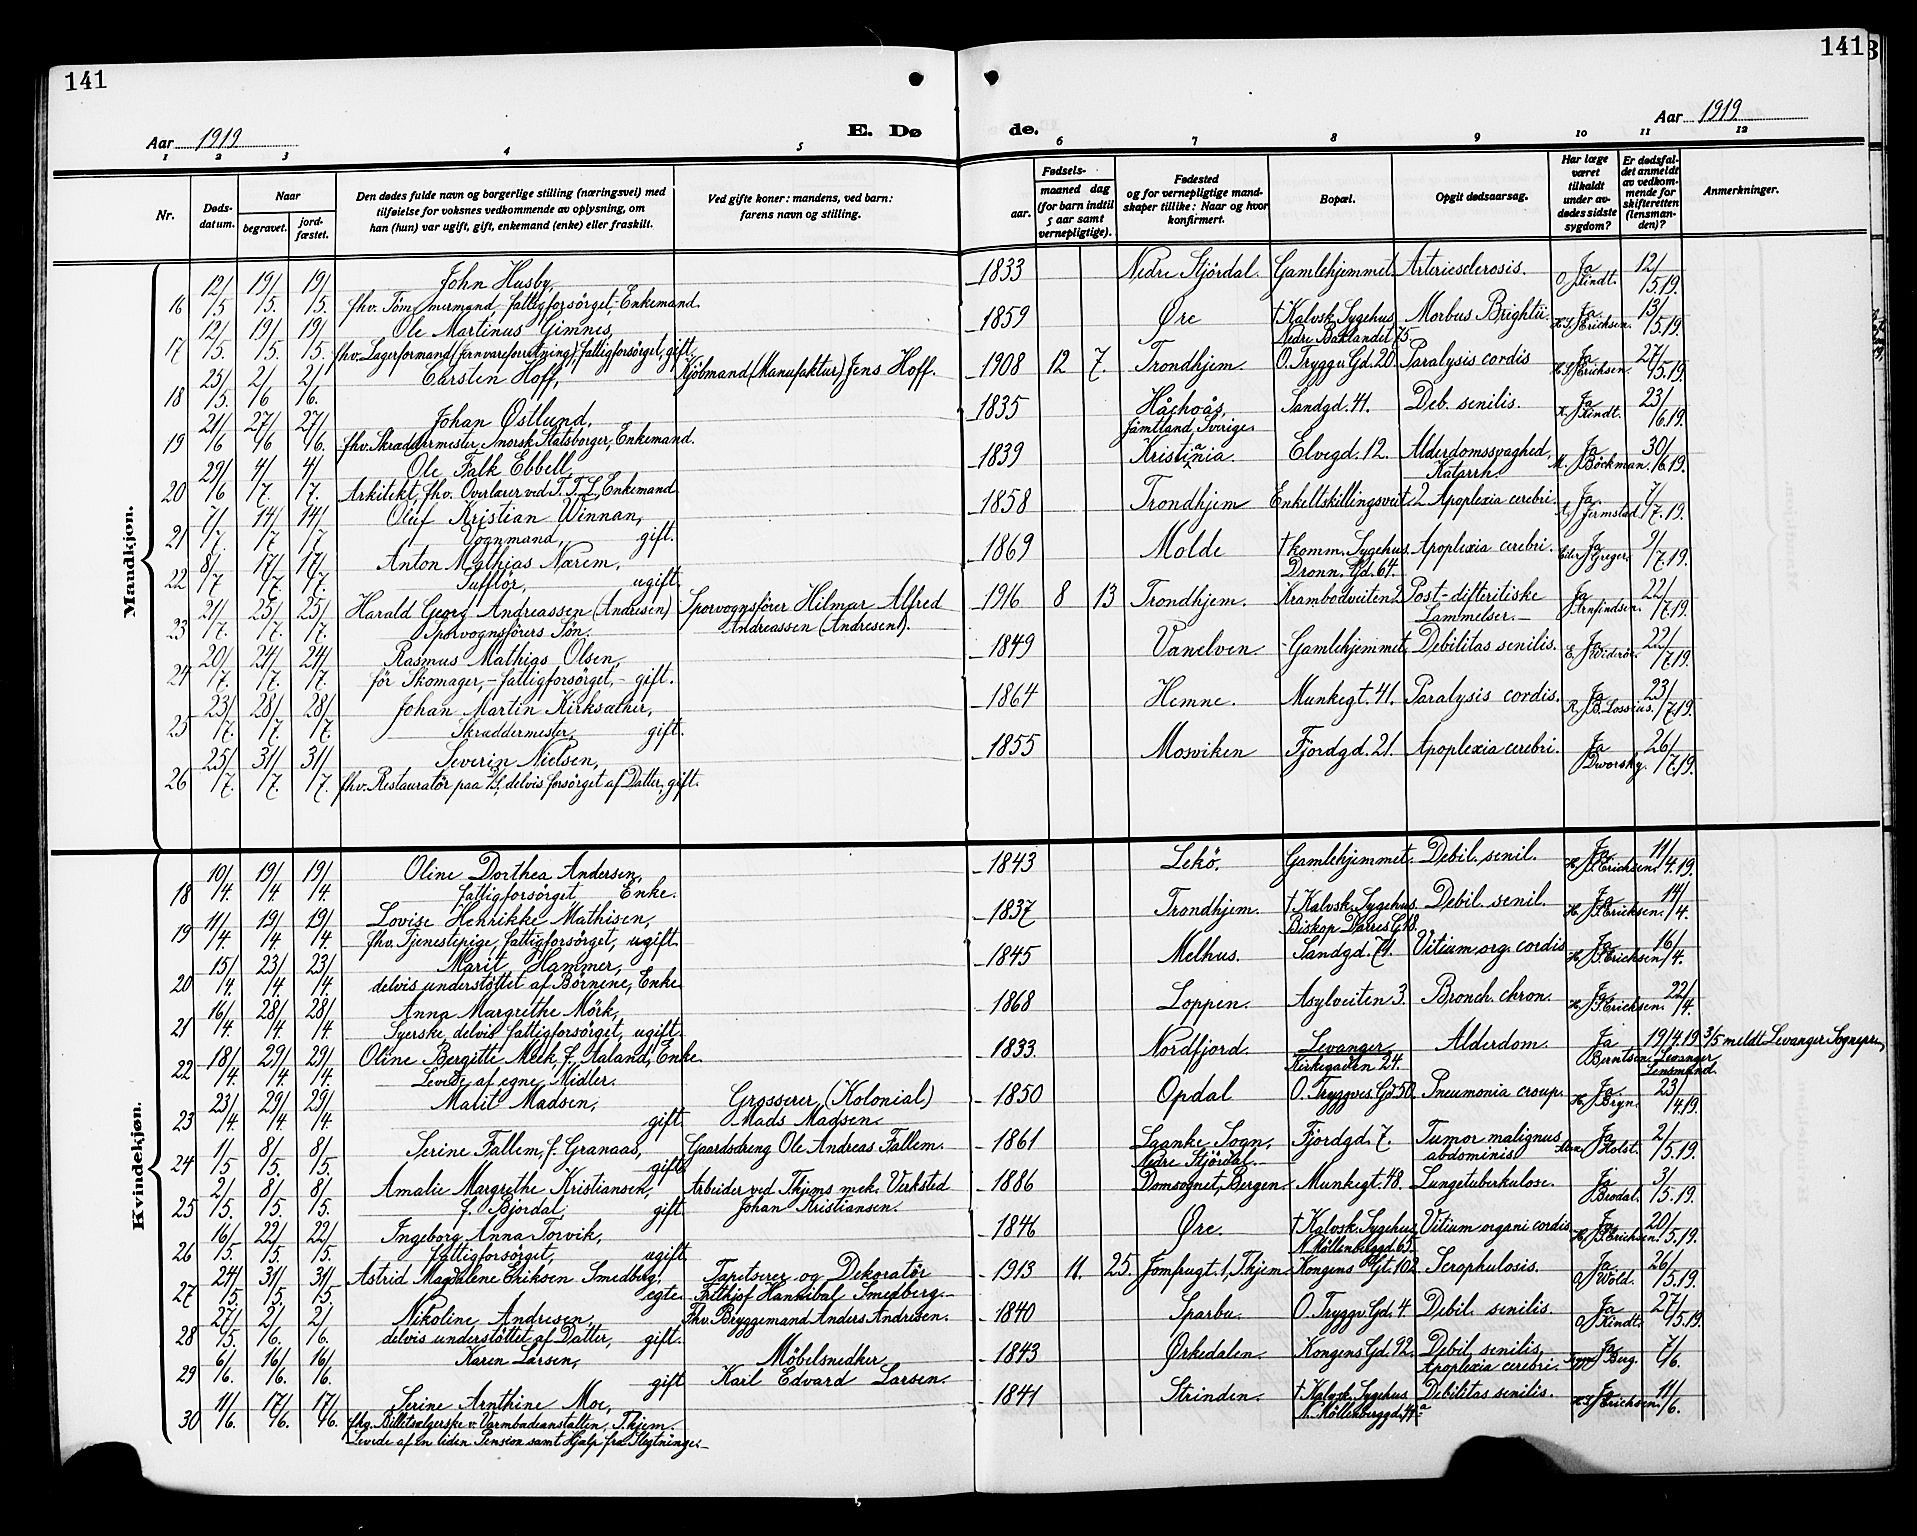 141
141
Aar 1919
E. Dø
de.
Aar 1919
1 2 3 4 5 6 7 8 9 10 11 12
Nr.
Døds-
datum.
Naar
begravet.
jord-
fæstet.
Den dødes fulde navn og borgerlige stilling (næringsvei) med
tilføielse for voksnes vedkommende av oplysning, om
han (hun) var ugift, gift, enkemand (enke) eller fraskilt.
Ved gifte koner: mandens, ved barn:
farens navn og stilling.
Fødsels-
aar.
maaned dag
(for barn indtil
5 aar samt
vernepligtige).
Fødested
og for vernepligtige mand-
skaper tillike: Naar og hvor
konfirmert.
Bopæl.
Opgit dødsaarsag.
Har læge
været
tilkaldt
under av-
dødes sidste
sygdom?
Er dødsfal-
det anmeldt
av vedkom-
mende for
skifteretten
(lensman-
den)?
Anmerkninger.
Mandkjøn.
16 12/5. 19/5. 19/5. John Husby, 1833 Nedre Stjördal. Gamlehjemmet. Arteriesclerosis. Ja 12/5.19.
fhv. Tömmermand, fattigforsörget, Enkemand. O. Kindt.
17 12/5. 19/5. 19/5. Ole Martinus Gimnes, 1859 Øre † Kalvsk. Sygehus Morbus Brightii. Ja 13/5.19.
fhv. Lagerformand (jernvareforretning) fattigforsörget, gift. Nedre Baklandet 75. H. S. Erichsen.
18 25/5. 2/6 2/6. Carsten Hoff, Kjöbmand (Manufaktur) Jens Hoff. 1908 12 7. Trondhjem. O. Tryggv. Gd. 20. Paralysis cordis Ja 27/5.19.
H. S. Erichsen.
19 21/6 27/6 27/6. Johan Östlund, 1835 Sandgd. 41. Deb. senilis. Ja 23/6.19.
fhv. Skræddermester, norsk Statsborger, Enkemand. Jämtland, Sverige. Kindt.
20 29/6 4/7. 4/7. Ole Falk Ebbell, 1839 Kristiania. Elvegd. 12. Alderdomssvaghed, Ja 30/6.19.
Arkitekt, fhv. Overlærer ved T. T. L., Enkemand Katarrh. M. Böckman.
21 7/7. 14/7 14/7 Oluf Kristian Winnan, 1858 Trondhjem Enkeltskillingsveit. 2 Apoplexia cerebri. Ja. 7/7.19.
Vognmand, gift. Jermstad.
22 8/7 17/7. 17/7. Anton Mathias Nærem, 1869 Molde † komm. Sygehus. Apoplexia cerebri. Ja 9/7.19.
Sufflör, ugift. Dronn. Gd. 64. Greger
23 21/7. 25/7. 25/7. Harald Georg Andreassen (Andresen) Sporvognsförer Hilmar Alfred 1916 8 13 Trondhjem. Krambodveiten 2 Post-difteritiske Ja 22/7.19.
Sporvognsförers Sön. Andreassen (Andresen). Lammelser. Arnfindsen.
24 20/7. 24/7. 24/7. Rasmus Mathias Olsen, 1849 Vanelven Gamlehjemmet. Debilitas senilis. Ja 22/7.19.
för Skomager, - fattigforsörget, - gift. E. Wideröe.
25 23/7. 28/7. 28/7. Johan Martin Kirksæther, 1864 Hemne. Munkegt. 41. Paralysis cordis. Ja 23/7.19.
Skræddermester, gift. R. B. Lossius.
26 25/7. 31/7. 31/7. Severin Nielsen, 1855 Mosviken Fjordgd. 21. Apoplexia cerebri. Ja 26/7.19.
fhv. Restauratör paa D/S, delvis forsörget af Datter, gift. Dworsky.
Kvindekjøn.
18 10/4. 19/4. 19/4. Oline Dorthea Andersen, 1843 Lekö. Gamlehjemmet. Debil. senil. Ja 11/4.19.
fattigforsörget, Enke. H. S. Erichsen.
19 11/4. 19/4. 19/4. Lovise Henrikke Mathisen, 1837 Trondhjem. † Kalvsk. Sygehus. Debil. senil. Ja 14/4.
fhv. Tjenestepige, fattigforsörget, ugift. Biskop Darres G. 18. H. S. Erichsen.
20 15/4. 23/4. 23/4. Marit Hammer, 1845 Melhus. Sandgd. 71. Vitium org. cordis Ja 16/4.
delvis understöttet af Börnene, Enke H. S. Erichsen
21 16/4. 28/4 28/4. Anna Margrethe Mörk, 1868 Loppen. Asylveiten 3. Bronch. chron. Ja 22/4.
Syerske, delvis fattigforsörget, ugift. H. S. Erichsen.
22 18/4. 29/4. 29/4. Oline Bergitte Meek, f. Aaland, Enke. 1833. Nordfjord. Levanger Alderdom. Ja 19/4.19. 3/5 meldt Levanger Sognepr.
Levede af egne Midler. Kirkegaden 24. Berntsen. Levanger
Lensmand.
23 23/4 29/4. 29/4. Marit Madsen, Grosserer (Kolonial) 1850 Opdal O. Tryggves. Gd. 50. Pneumonia croup. Ja 23/4.19.
gift Mads Madsen. H. Bryn.
24 1/5 8/5. 8/5. Serine Fallem, f. Granaas, Gaardsdreng Ole Andreas Fallem. 1861 Laanke Sogn, Fjordgd. 7. Tumor malignus Ja 2/5.19.
gift Nedre Stjördal. abdominis Holst.
25 2/5. 8/5. 8/5. Amalie Margrethe Kristiansen, Arbeider ved Thjems mek. Verksted 1886 Domsognet, Bergen. Munkegt. 48. Lungetuberkulose. Ja 3/5.19.
f. Bjordal, gift. Johan Kristiansen. Brodal.
26 16/5. 22/5. 22/5. Ingeborg Anna Torvik, 1846 Øre. † Kalvsk. Sygehus Vitium organi cordis Ja 20/5.19.
fattigforsörget, ugift. N. Möllenberggd. 65. H. S. Erichsen.
27 24/5. 31/5. 31/5. Astrid Magdalene Eriksen Smedberg, Tapetserer og Dekoratör 1913 11. 25. Jomfrugt. 1, Thjem. Kongens Gt. 102. Scrophulosis. Ja. 26/5.19.
egte. Frithjof Hannibal Smedberg. O. Wold.
28 27/5. 2/6. 2/6. Nikoline Andresen, Fhv. Bryggemand Anders Andresen. 1840 Sparbu. O. Tryggv. Gd. 4. Debil. senilis. Ja 27/5.19.
delvis understöttet af Datter, gift. O. Kindt.
29 6/6. 16/6. 16/6. Karen Larsen, Möbelsnedker 1843 Ørkedalen. Kongens Gd. 92. Debil. senilis, Ja 7/6.
gift Karl Edvard Larsen. Apoplexia cerebri. Berg.
30 11/6. 17/6. 17/6. Serine Arnthine Moe, 1841 Strinden. † Kalvsk. Sygehus Debilitas senilis. Ja 11/6.
fhv. Billetsælgerske v. Varmbadeanstalten, Thjem. N. Möllenberggd. H. S. Erichsen.
Levede af en liden Pension samt Hjælp fra Slegtninge.